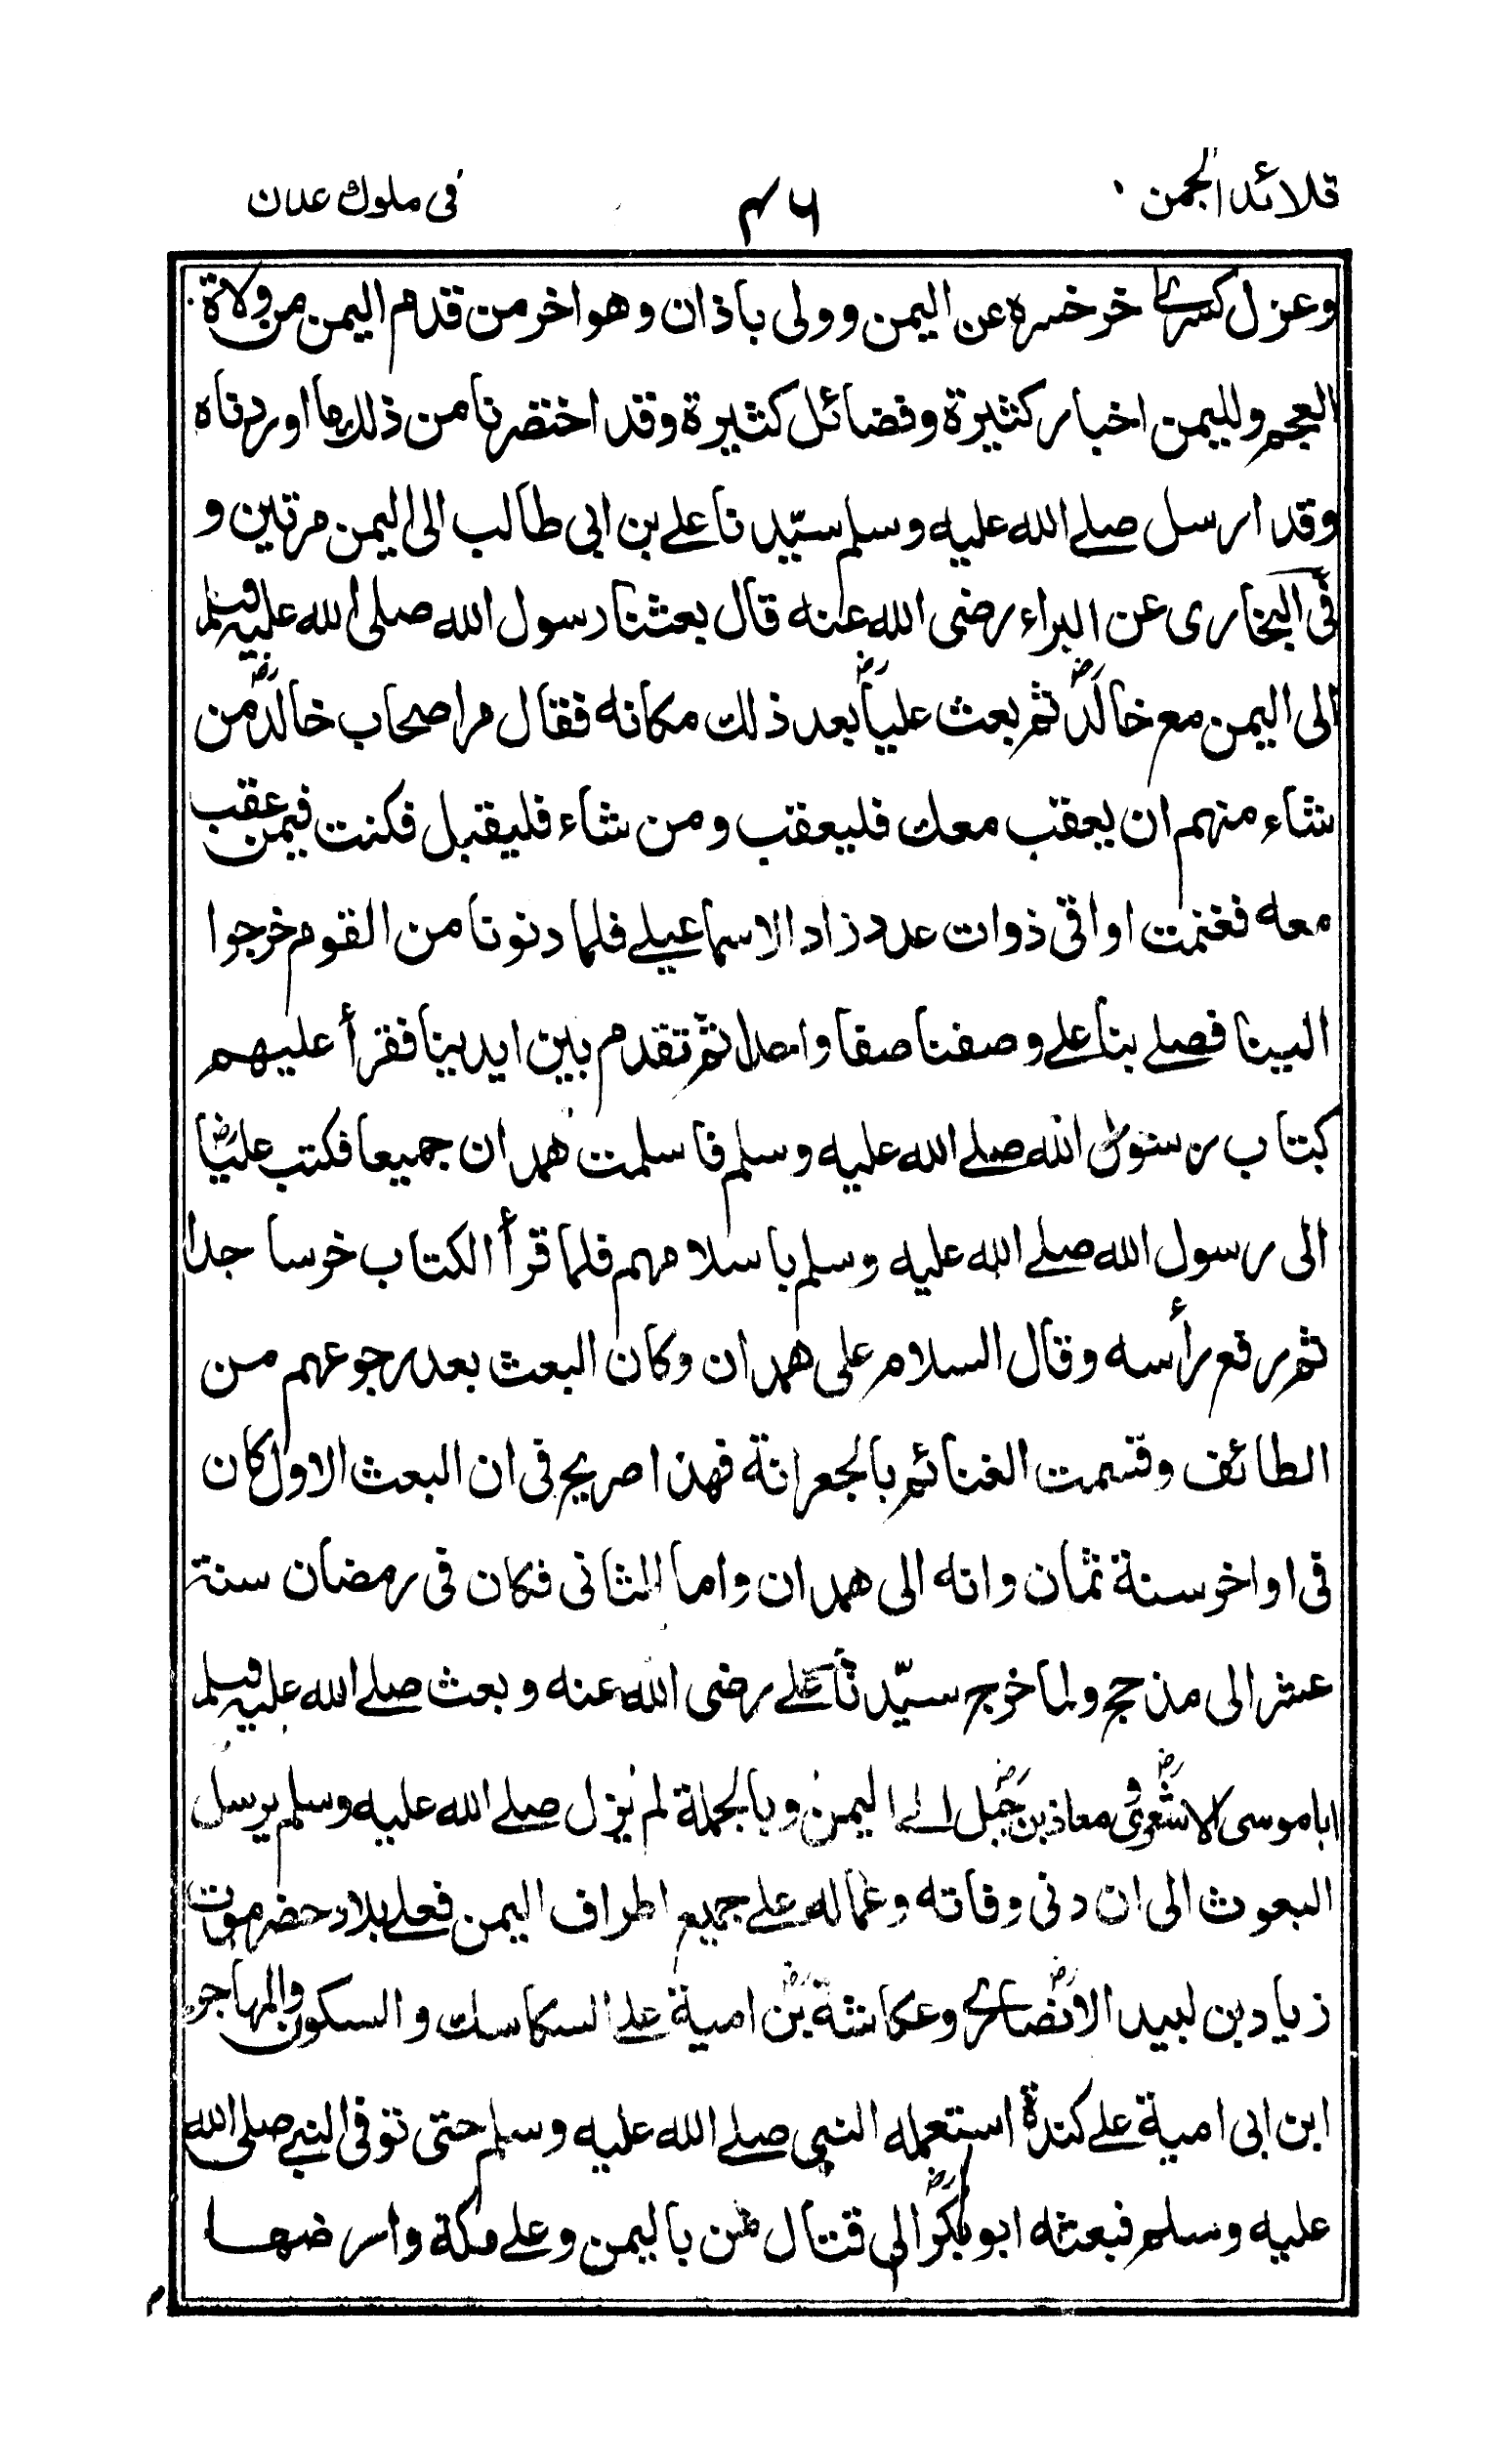 قلائد الجمن ۴۶ فى ملوك عدن
وعزل كسرے خرخسره عن اليمن وولى باذان وهو اخر من قدم اليمن من ولاة
العجم ولليمن اخبار كثيرة وفضائل كثيرة وقد اختصرنا من ذلك ما اوردناه
وقد ارسل صلے الله عليه وسلم سيّدنا علے بن ابى طالب الى اليمن مرتين و
فى البخارى عن البراء رضى الله عنه قال بعثنا رسول الله صلى الله عليه وسلم
الى اليمن مع خالدؓ ثم بعث علياؓ بعد ذلك مكانه فقال مر اصحاب خالدؓ من
شاء منهم ان يعقب معك فليعقب ومن شاء فليقبل فكنت فيمن عقب
معه فغنمت اواقى ذوات عدد زاد الاسماعيلے فلما دنونا من القوم خرجوا
الينا فصلے بنا علے وصفنا صفا واحدا ثم تقدم بين ايدينا فقرأ عليهم
كتاب رسول الله صلے الله عليه وسلم فاسلمت همدان جميعا فكتب علياؓ
الى رسول الله صلے الله عليه وسلم باسلامهم فلما قرأ الكتاب خر ساجدا
ثم رفع رأسه وقال السلام على همدان وكان البعث بعد رجوعهم من
الطائف وقسمت الغنائم بالجعرانة فهذا صريح فى ان البعث الاول كان
فى اواخر سنة ثمان وانه الى همدان واما الثانى فكان فى رمضان سنة
عشر الى مذحج ولما خرج سيّدنا علے رضى الله عنه وبعث صلے الله عليه وسلم
ابا موسى الاشعرىؓ و معاذ بن جبلؓ الے اليمن وبالجملة لم يزل صلے الله عليه وسلم يرسل
البعوث الى ان دنى وفاته وعماله علے جميع اطراف اليمن فعلے بلاد حضرموت
زياد بن لبيد الانصارےؓ وعكاشة بنؓ امية علے السكاسك والسكون والمهاجر
ابن ابى امية علے كندة استعمله النبى صلے الله عليه وسلم حتى توفى النبے صلى الله
عليه وسلم فبعثه ابو بكرؓ الى قتال من باليمن وعلے مكة وارضها